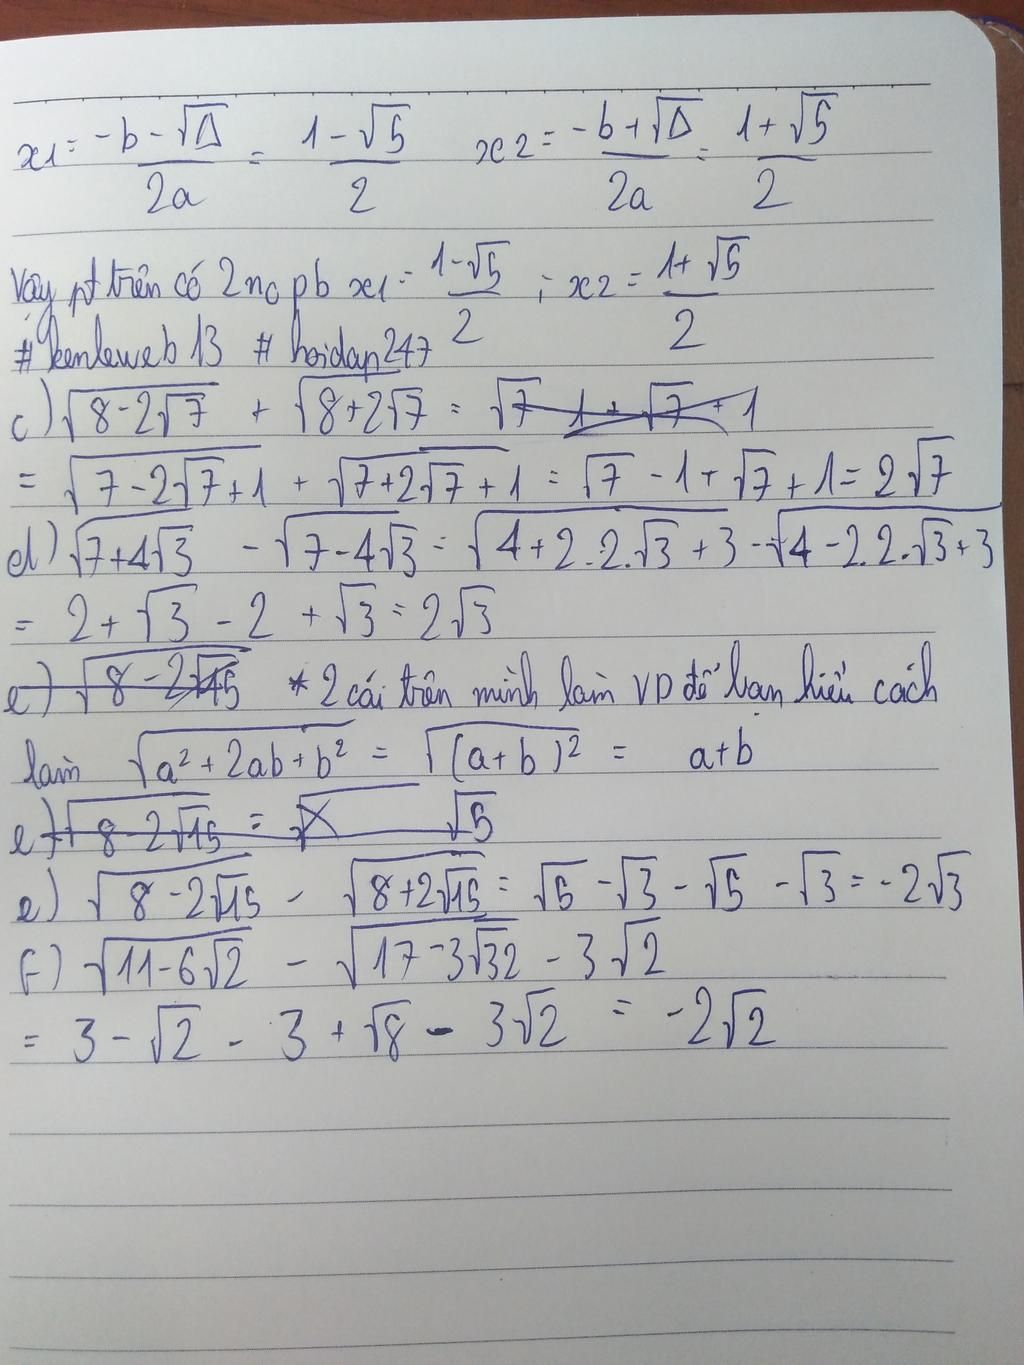 x1 = (-b - √Δ)/2a = (1 - √5)/2   x2 = (-b + √Δ)/2a = (1 + √5)/2
Vậy pt trên có 2 no pb x1 = (1 - √5)/2 ; x2 = (1 + √5)/2
# kenleweb13 # hoidap247
c) √(8 - 2√7) + √(8 + 2√7) = √7 - 1 + √7 + 1
= √(7 - 2√7 + 1) + √(7 + 2√7 + 1) = √7 - 1 + √7 + 1 = 2√7
d) √(7 + 4√3) - √(7 - 4√3) = √(4 + 2.2.√3 + 3) - √(4 - 2.2.√3 + 3)
= 2 + √3 - 2 + √3 = 2√3
e) √(8 - 2√15) * 2 cái trên mình làm VD để bạn hiểu cách
làm √(a² + 2ab + b²) = √((a + b)²) = a + b
e) √(8 - 2√15) = √ √5
e) √(8 - 2√15) - √(8 + 2√15) = √5 - √3 - √5 - √3 = -2√3
f) √(11 - 6√2) - √(17 - 3√32) - 3√2
= 3 - √2 - 3 + √8 - 3√2 = -2√2